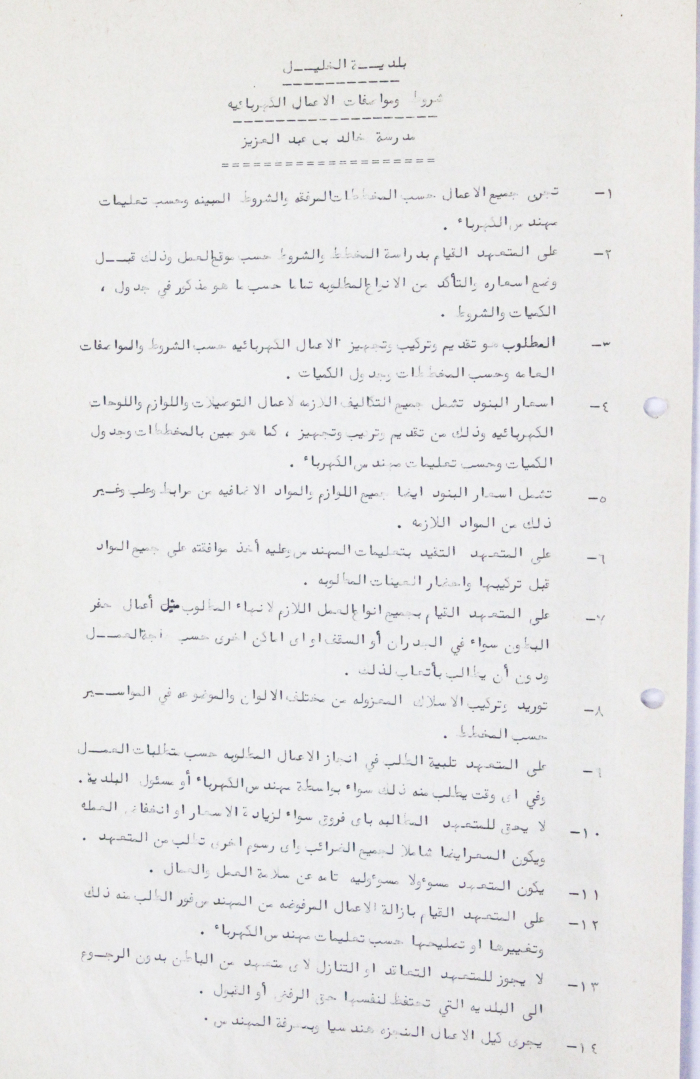 بلديـــة الخليــل
شروط ومواصفات الاعمال الكهربائيه
مدرسة خالد بن عبد العزيز
١- تجرى جميع الاعمال حسب المخططات المرفقه والشروط المبينه وحسب تعليمات
مهندس الكهرباء .
٢- على المتعهد القيام بدراسة المخطط والشروط حسب موقع العمل وذلك قبــل
وضع اسعاره والتأكد من الانواع المطلوبه تماما حسب ما هو مذكور في جدول ،
الكميات والشروط .
٣- المطلوب هو تقديم وتركيب وتجهيز الاعمال الكهربائيه حسب الشروط والمواصفات
العامه وحسب المخططات وجدول الكميات .
٤- اسعار البنود تشمل جميع التكاليف اللازمه لاعمال التوصيلات واللوازم واللوحات
الكهربائيه وذلك من تقديم وتركيب وتجهيز ، كما هو مبين بالمخططات وجدول
الكميات وحسب تعليمات مهندس الكهرباء .
٥- تشمل اسعار البنود ايضا جميع اللوازم والمواد الاضافيه من مرابط وعلب وغير
ذلك من المواد اللازمه .
٦- على المتعهد التقيد بتعليمات المهندس وعليه أخذ موافقته على جميع المواد
قبل تركيبها واحضار العينات المطلوبه .
٧- على المتعهد القيام بجميع انواع العمل اللازم لانهاء المطلوب مثل أعمال حفر
البطون سواء في الجدران أو السقف او اى اماكن اخرى حسب حاجة العمـــل
ودون أن يطالب بأتعاب لذلك .
٨- توريد وتركيب الاسلاك المعزوله من مختلف الالوان والموضوعه في المواســير
حسب المخطط .
٩- على المتعهد تلبية الطلب في انجاز الاعمال المطلوبه حسب متطلبات العمــل
وفي اى وقت يطلب منه ذلك سواء بواسطة مهندس الكهرباء أو مسئول البلدية .
١٠- لا يحق للمتعهد المطالبه باى فروق سواء لزيادة الاسعار او انخفاض العمله
ويكون السعر ايضا شاملا لجميع الضرائب واى رسوم اخرى تطلب من المتعهد .
١١- يكون المتعهد مسوءولا مسوءوليه تامه عن سلامة العمل والعمال .
١٢- على المتعهد القيام بازالة الاعمال المرفوضه من المهندس فور الطلب منه ذلك
وتغييرها او تصليحها حسب تعليمات مهندس الكهرباء .
١٣- لا يجوز للمتعهد التعاقد او التنازل لاى متعهد من الباطن بدون الرجوع
الى البلديه التي تحتفظ لنفسها حق الرفض أو القبول .
١٤- يجرى كيل الاعمال المنجزه هندسيا وبمعرفة المهندس .